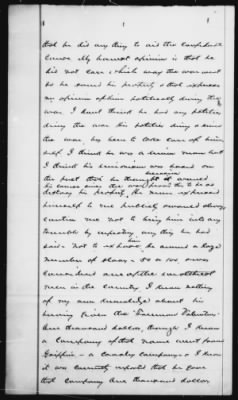 that he did any thing to aid the confederate
cause My honest opinion is that he
did not care which way the war went
so he saved his property & that expresses
my opinion of him politically during the
war. I don't think he had any politics
during the war his politics during & since
the war has been to take care of him
self I think he was a Union man but
I think his Unionism was based on
the fact that he thought it would because
his cause over the war
destroy his property. He never expressed
himself to me publicly & owned always
caution me not to bring him into any
trouble by repeating any thing he had
said. Not to expose him he owned a large
number of slaves - & was
considered one of the wealthiest
men in the County. I know nothing
of my own knowledge about his
having given the Volunteers
one thousand dollars, though I know
a company of that name went from
Griffin - a Cavalry company & I know
it was currently reported that he gave
that company one thousand dollars